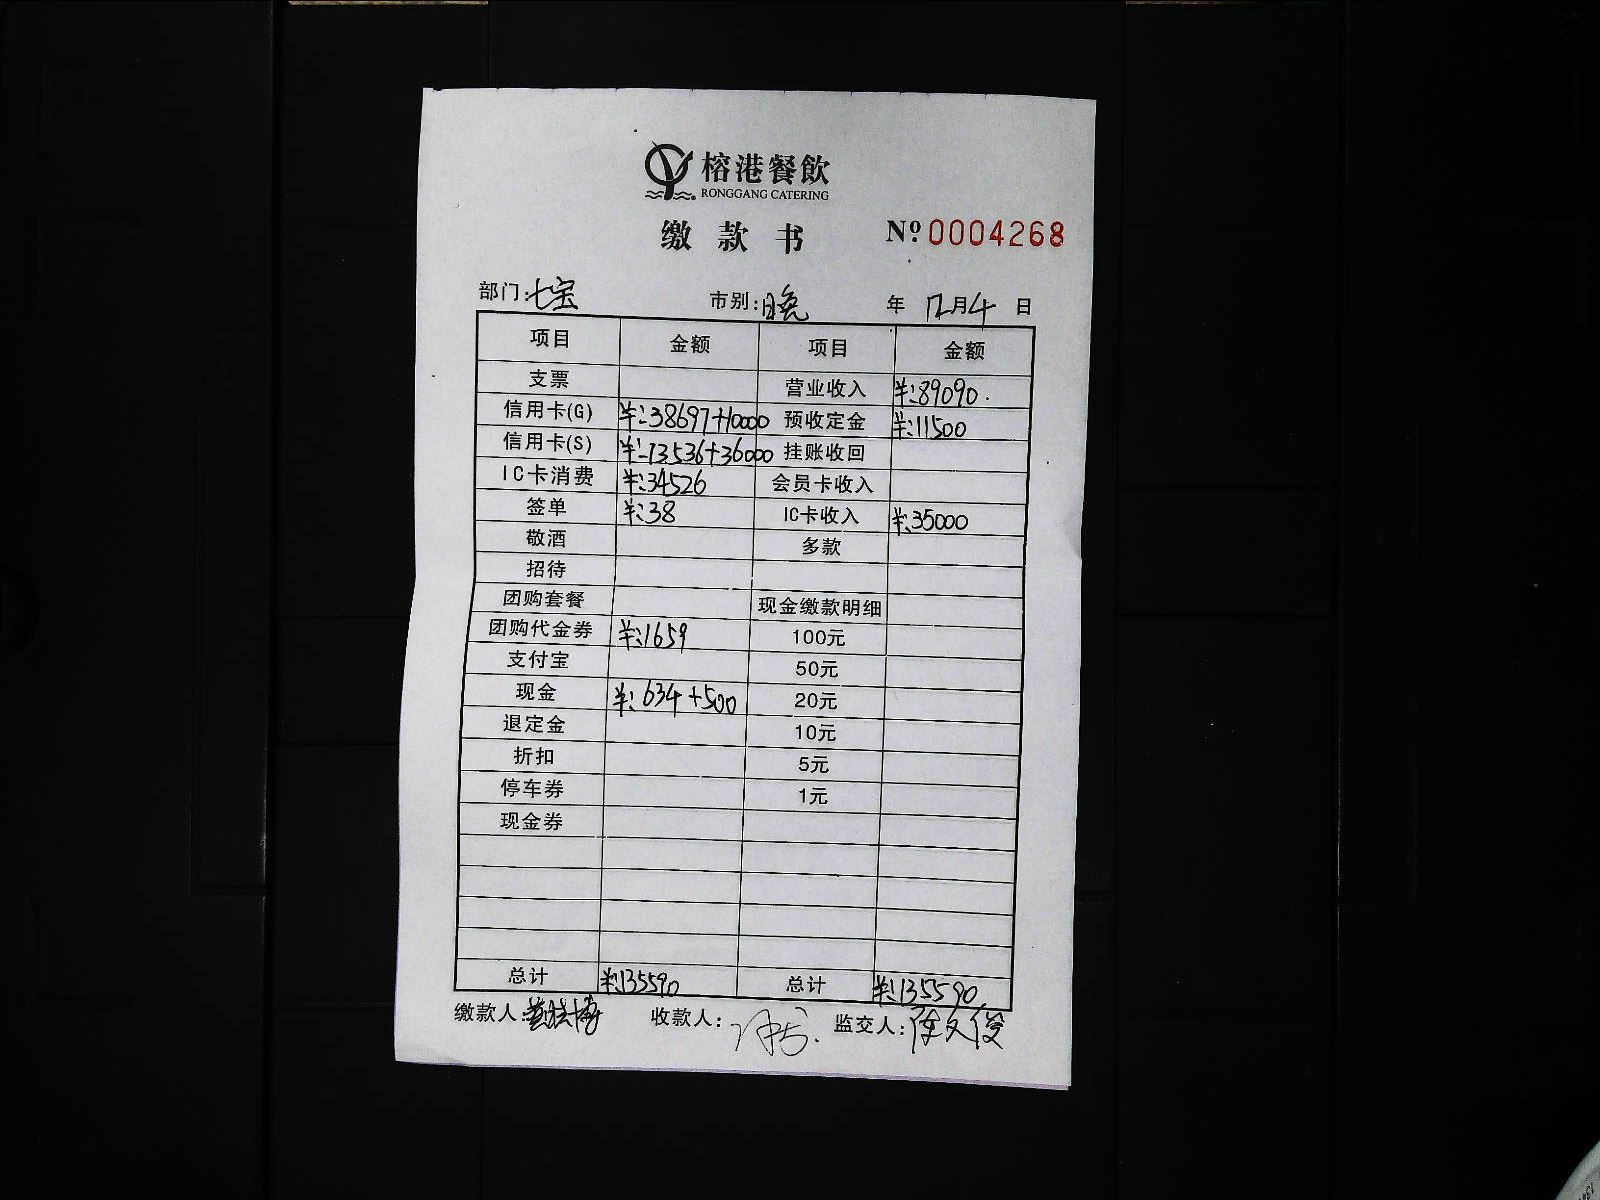 榕港餐飲
RONGGANG CATERING
缴款书 Nº 0004268
部门:七宝 市别:晚 年 12月4日
项目 金额 项目 金额
支票 营业收入 ¥:89090.
信用卡(G) ¥:38697+10000 预收定金 ¥:11500
信用卡(S) ¥:13536+36000 挂账收回
IC卡消费 ¥:34526 会员卡收入
签单 ¥:38 IC卡收入 ¥:35000
敬酒 多款
招待
团购套餐 现金缴款明细
团购代金券 ¥:1659 100元
支付宝 50元
现金 ¥:634+500 20元
退定金 10元
折扣 5元
停车券 1元
现金券
总计 ¥:135590 总计 ¥:135590.
缴款人: 收款人: 监交人: